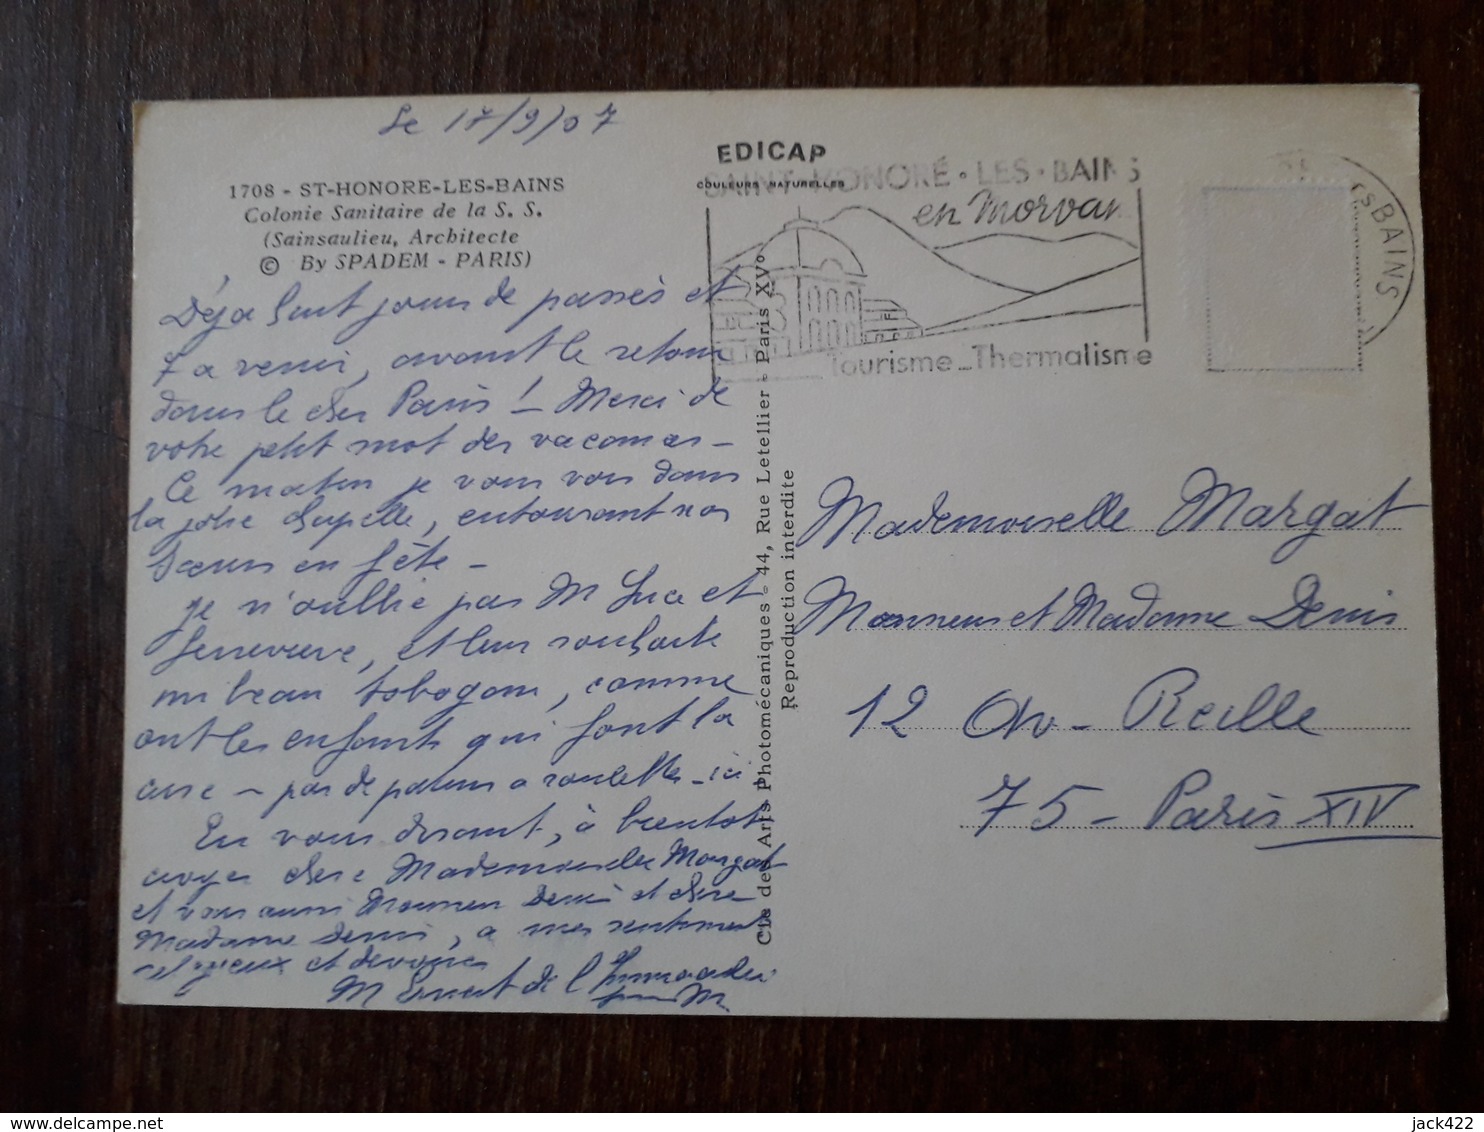 Le 17/9/07
1708 - ST-HONORE-LES-BAINS
Colonie Sanitaire de la S. S.
(Sainsaulieu, Architecte
© By SPADEM - PARIS)
Déja huit jours de passés et
7 a venir, avant le retour
dans le cher Paris ! - Merci de
votre petit mot des vacances -
Ce matin je vous vois dans
la jolie chapelle, entourant nos
Sœurs en fête -
je n'oublie pas M Luce et
Genevieve, et leur souhaite
un beau toboggan, comme
ont les enfants qui font la
cure - pas de patins a roulettes - ici
En vous disant, à bientot
croyez chere Mademoiselle Margat
et vous aussi Monsieur Denis et chere
Madame Denis, a mes sentiments
religieux et devoués
M Ernest de l'Immaculée
EDICAP
COULEURS NATURELLES
SAINT-HONORÉ • LES • BAINS
en Morvan
Tourisme - Thermalisme
BAINS
Cie des Arts Photomécaniques - 44, Rue Letellier - Paris XVe
Reproduction interdite
Mademoiselle Margat
Monsieur et Madame Denis
12 Av - Reille
75 - Paris XIV
jack422